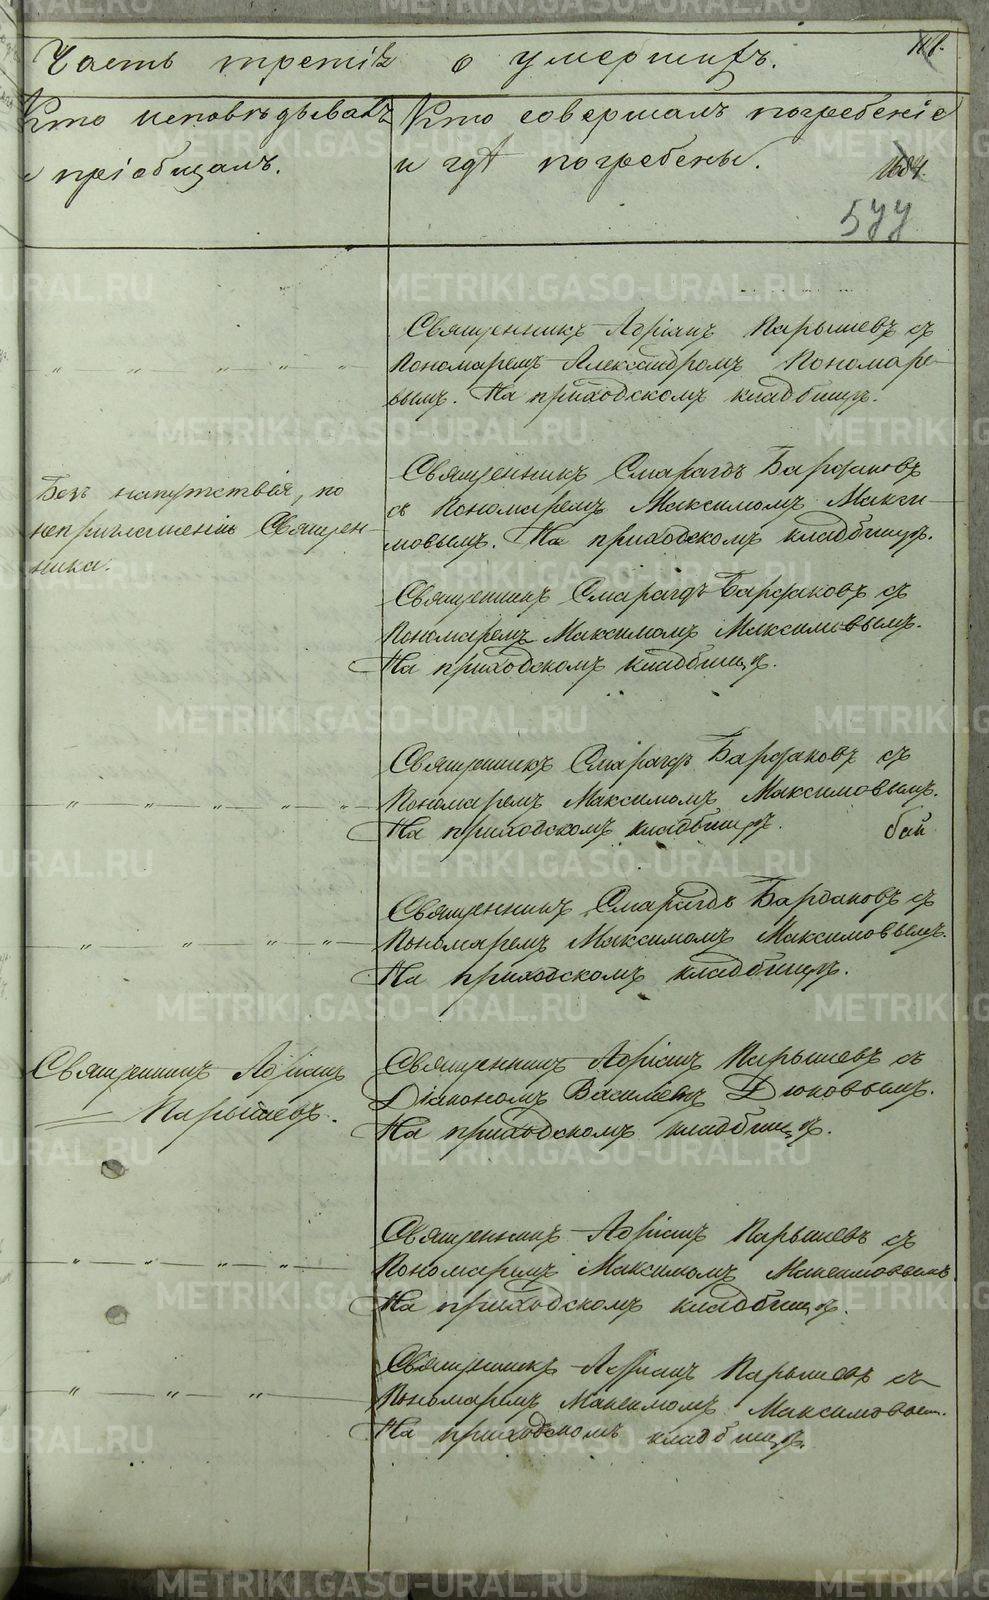 Часть третія о умершихъ.
Кто исповѣдывалъ
и пріобщалъ.
Кто совершалъ погребеніе
и гдѣ погребены.
577
Священникъ Адріанъ Парышевъ съ
Пономаремъ Александромъ Пономаре-
вымъ. На приходскомъ кладбищѣ.
Безъ напутствія, по
неприглашенію Священ-
ника.
Священникъ Смарагдъ Бардаковъ
съ Пономаремъ Максимомъ Макси-
мовымъ. На приходскомъ кладбищѣ.
Священникъ Смарагдъ Бардаковъ съ
Пономаремъ Максимомъ Максимовымъ.
На приходскомъ кладбищѣ.
Священникъ Смарагдъ Бардаковъ съ
Пономаремъ Максимомъ Максимовымъ.
На приходскомъ кладбищѣ.
Священникъ Смарагдъ Бардаковъ съ
Пономаремъ Максимомъ Максимовымъ.
На приходскомъ кладбищѣ.
Священникъ Адріанъ
Парышевъ.
Священникъ Адріанъ Парышевъ съ
Діакономъ Василіемъ Дюковымъ.
На приходскомъ кладбищѣ.
Священникъ Адріанъ Парышевъ съ
Пономаремъ Максимомъ Максимовымъ
На приходскомъ кладбищѣ.
Священникъ Адріанъ Парышевъ съ
Пономаремъ Максимомъ Максимовым.
На приходскомъ кладбищѣ.
METRIKI.GASO-URAL.RU